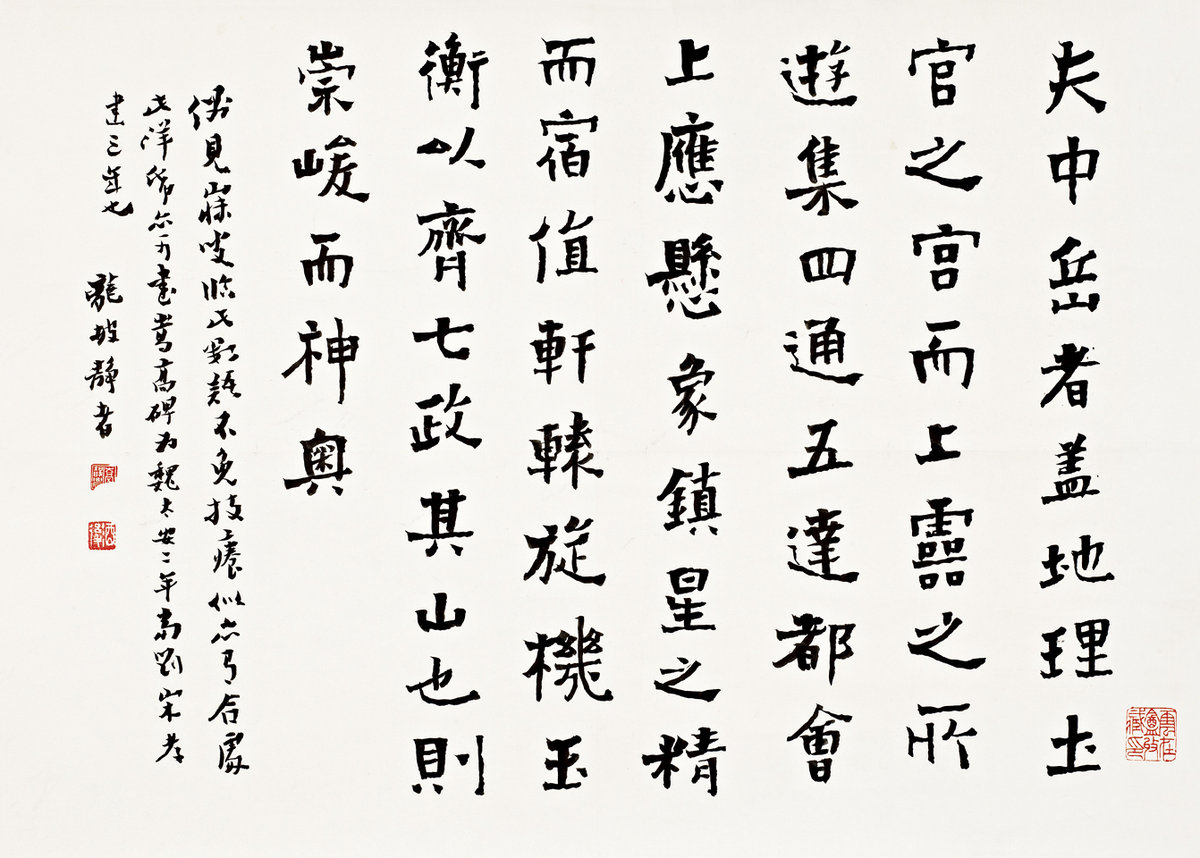 夫中岳者盖地理土
官之宫而上靈之所
遊集四通五達都會
上應懸象鎮星之精
而宿值軒轅旋機玉
衡以齊七政其山也則
崇峻而神奥
偶見寐叟臨此數語不免技癢似亦有合處
此洋紙亦可書嵩高碑为魏太安二年當劉宋孝
建三年也
龍坡靜者